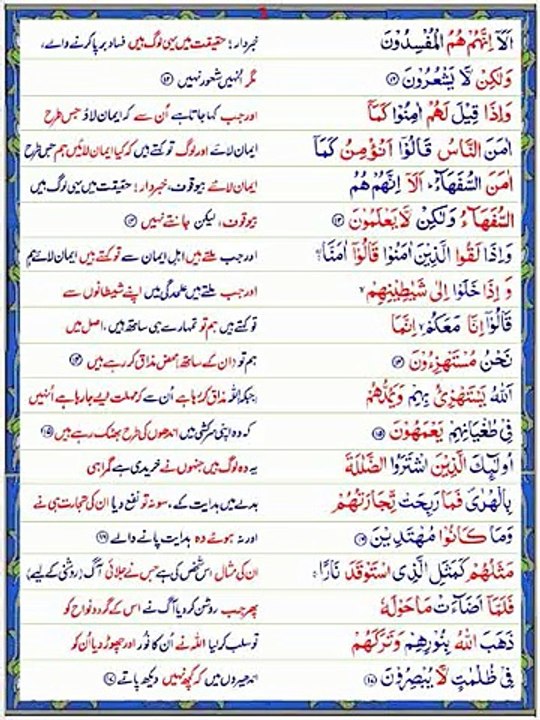 اَلَاۤ اِنَّهُمْ هُمُ الْمُفْسِدُوْنَ خبردار! حقیقت میں یہی لوگ ہیں فساد برپا کرنے والے،
وَلٰكِنْ لَّا یَشْعُرُوْنَ ﴿۱۲﴾ مگر اُنہیں شعور نہیں ﴿۱۲﴾
وَاِذَا قِیْلَ لَهُمْ اٰمِنُوْا كَمَاۤ اور جب کہا جاتا ہے اُن سے کہ ایمان لاؤ جس طرح
اٰمَنَ النَّاسُ قَالُوْۤا اَنُؤْمِنُ كَمَاۤ ایمان لائے اور لوگ تو کہتے ہیں کہ کیا ایمان لائیں ہم جس طرح
اٰمَنَ السُّفَهَآءُ ؕ اَلَاۤ اِنَّهُمْ هُمُ ایمان لائے بیوقوف، خبردار! حقیقت میں یہی لوگ ہیں
السُّفَهَآءُ وَلٰكِنْ لَّا یَعْلَمُوْنَ ﴿۱۳﴾ بیوقوف، لیکن جانتے نہیں ﴿۱۳﴾
وَاِذَا لَقُوا الَّذِیْنَ اٰمَنُوْا قَالُوْۤا اٰمَنَّا اور جب ملتے ہیں اہلِ ایمان سے تو کہتے ہیں ایمان لائے ہم
وَ اِذَا خَلَوْا اِلٰی شَیٰطِیْنِهِمْ ۙ اور جب ملتے ہیں علیحدگی میں اپنے شیطانوں سے
قَالُوْۤا اِنَّا مَعَكُمْ ۙ اِنَّمَا تو کہتے ہیں ہم تو تمہارے ہی ساتھ ہیں، اصل میں
نَحْنُ مُسْتَهْزِءُوْنَ ﴿۱۴﴾ ہم تو (ان کے ساتھ) محض مذاق کر رہے ہیں ﴿۱۴﴾
اَللّٰهُ یَسْتَهْزِئُ بِهِمْ وَیَمُدُّهُمْ جبکہ اللہ مذاق کر رہا ہے اُن سے کہ مہلت دیے جا رہا ہے اُنہیں
فِیْ طُغْیَانِهِمْ یَعْمَهُوْنَ ﴿۱۵﴾ کہ وہ اپنی سرکشی میں اندھوں کی طرح بھٹک رہے ہیں ﴿۱۵﴾
اُولٰٓئِكَ الَّذِیْنَ اشْتَرَوُا الضَّلٰلَةَ یہ وہ لوگ ہیں جنہوں نے خریدی ہے گمراہی
بِالْهُدٰی فَمَا رَبِحَتْ تِّجَارَتُهُمْ بدلے میں ہدایت کے، سو نہ تو نفع دیا ان کی تجارت ہی نے
وَمَا كَانُوْا مُهْتَدِیْنَ ﴿۱۶﴾ اور نہ ہوئے وہ ہدایت پانے والے ﴿۱۶﴾
مَثَلُهُمْ كَمَثَلِ الَّذِی اسْتَوْقَدَ نَارًا ۚ ان کی مثال اس شخص کی ہے جس نے جلائی آگ (روشنی کے لیے)
فَلَمَّاۤ اَضَآءَتْ مَاحَوْلَهٗ پھر جب روشن کر دیا آگ نے اس کے گردونواح کو
ذَهَبَ اللّٰهُ بِنُوْرِهِمْ وَتَرَكَهُمْ تو سلب کر لیا اللہ نے اُن کا نُور اور چھوڑ دیا اُن کو
فِیْ ظُلُمٰتٍ لَّا یُبْصِرُوْنَ ﴿۱۷﴾ اندھیروں میں کہ کچھ نہیں دیکھ پاتے ﴿۱۷﴾